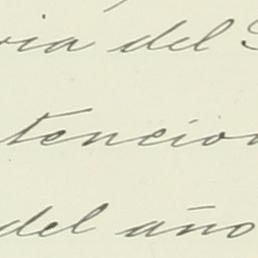 via del
tencion
del año